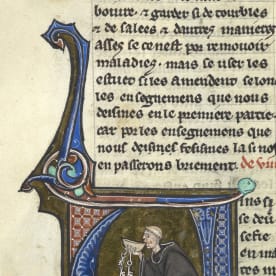 boiture · ⁊ garder si de tourbles
⁊ de salees ⁊ dautres maineres
asses se ce nest por remouvoir
maladies · mais se user les
estuet si les amendent selonc
les enseignemens que nous
desimes en le premiere partie ·
car por les enseignemens que
nous desimes
en passerons briement · de vin
ins si
se deu
sesie
en ma
tres m